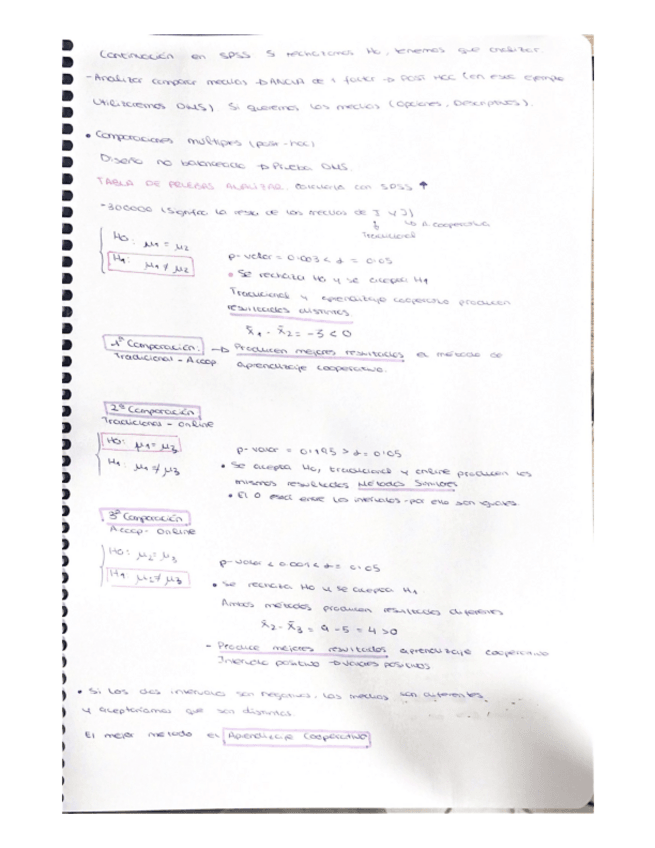 Continuación en SPSS si rechazamos Ho, tenemos que analizar.
- Analizar comparar medias → ANOVA de 1 factor → POST HOC (en este ejemplo
utilizaremos DMS). Si queremos las medias (opciones, Descriptivos).
• Comparaciones múltiples (post-hoc)
Diseño no balanceado → Prueba DMS.
TABLA DE PRUEBAS ANALIZAR. con SPSS ↑
-300000 (Signfca la resta de las medias de I y J)
↓ ↳ A. cooperativa
Tradicional
H0: μ1 = μ2
H1: μ1 ≠ μ2
p-valor = 0.003 < α = 0.05
• Se rechaza Ho y se acepta H1
Tradicional y aprendizaje cooperativo producen
resultados distintos.
x̄1 - x̄2 = -3 < 0
1ª Comparación. → Producen mejores resultados el método de
Tradicional - A coop aprendizaje cooperativo.
2ª Comparación
Tradicional - online
H0: μ1 = μ3
H1: μ1 ≠ μ3
p-valor = 0.195 > α = 0.05
• Se acepta Ho, tradicional y online producen los
mismos resultados Métodos Similares
• El 0 está entre los intervalos - por ello son iguales.
3ª Comparación
A coop - online
H0: μ2 = μ3
H1: μ2 ≠ μ3
p-valor < 0.001 < α = 0.05
• Se rechaza Ho y se acepta H1
Ambos métodos producen resultados diferentes
x̄2 - x̄3 = 9 - 5 = 4 > 0
- Produce mejores resultados aprendizaje cooperativo
Intervalo positivo → valores positivos
• Si los dos intervalos son negativos, las medias son diferentes
y aceptaríamos que son distintas.
El mejor método es Aprendizaje Cooperativo